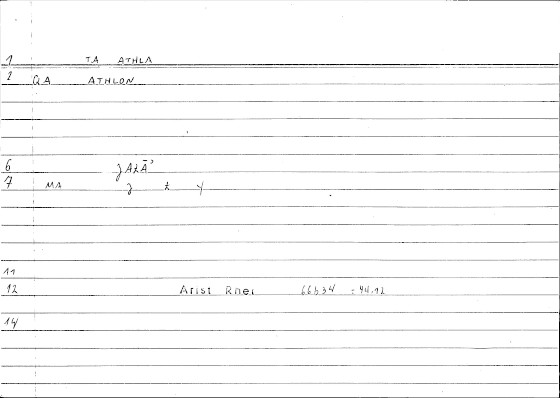 1 TA ATHLA
2 QA ATHLON
6
7 MA
11
12 Arist Rhei 66b34 : 94.12
14